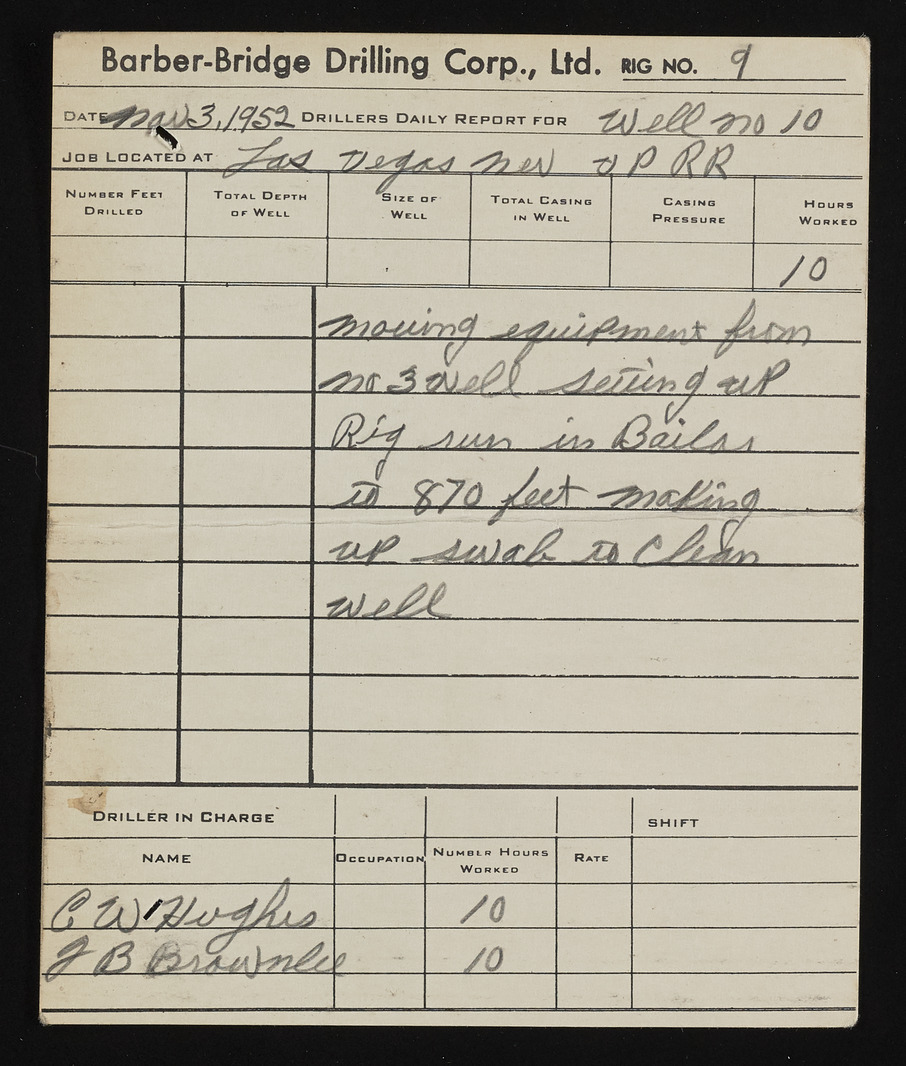 Barber-Bridge Drilling Corp., Ltd. RIG NO. 9
DATE Nov 3, 1952 DRILLERS DAILY REPORT FOR Well no 10
JOB LOCATED AT Las Vegas Nev U P RR
NUMBER FEET DRILLED
TOTAL DEPTH OF WELL
SIZE OF WELL
TOTAL CASING IN WELL
CASING PRESSURE
HOURS WORKED
10
moving equipment from
no 3 well setting up
Rig run in Bailer
to 870 feet making
up swab to Clean
well
DRILLER IN CHARGE SHIFT
NAME OCCUPATION NUMBER HOURS WORKED RATE
C W Hughes 10
J B Brownlee 10